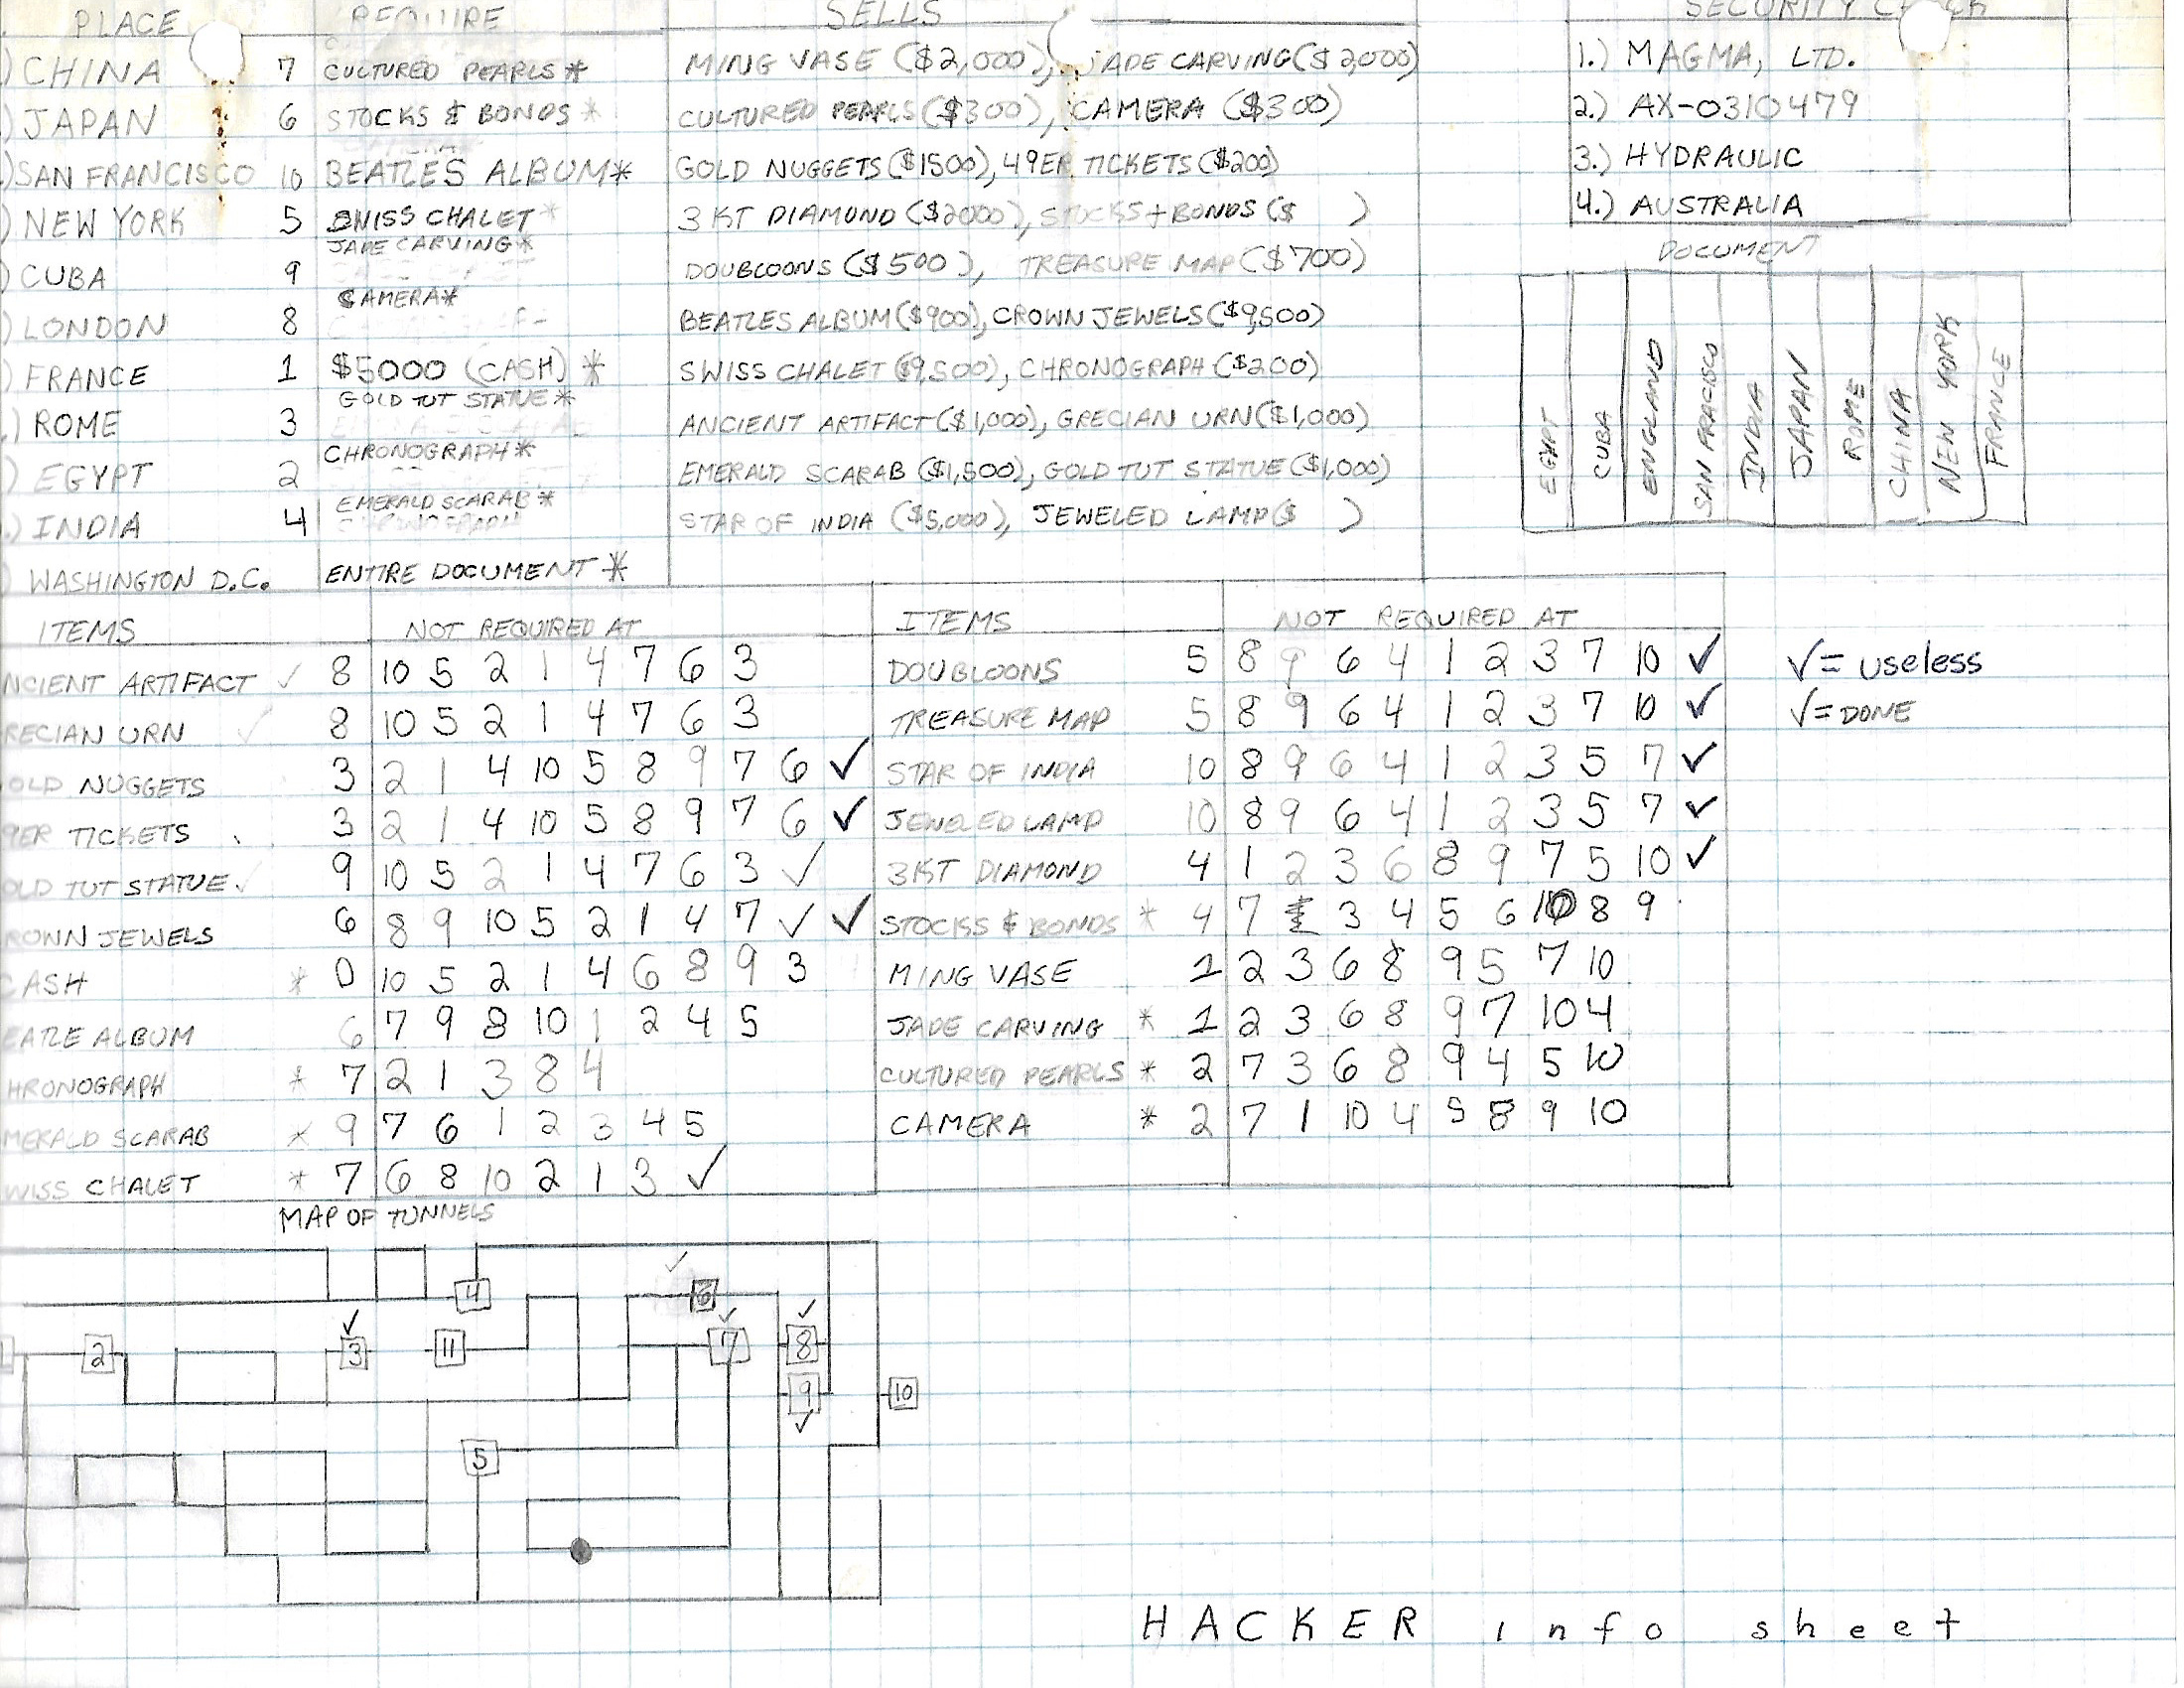 PLACE REQUIRE SELLS
) CHINA 7 CULTURED PEARLS* MING VASE ($2,000), JADE CARVING($2,000)
) JAPAN 6 STOCKS & BONDS * CULTURED PEARLS($300), CAMERA ($300)
) SAN FRANCISCO 10 BEATLES ALBUM* GOLD NUGGETS($1500), 49ER TICKETS($200)
) NEW YORK 5 SWISS CHALET* 3 KT DIAMOND ($2000), STOCKS + BONDS ($ )
) CUBA 9 JADE CARVING* DOUBLOONS ($500), TREASURE MAP($700)
) LONDON 8 CAMERA* BEATLES ALBUM($900), CROWN JEWELS($9,500)
) FRANCE 1 $5000 (CASH) * SWISS CHALET($9,500), CHRONOGRAPH($200)
.) ROME 3 GOLD TUT STATUE* ANCIENT ARTIFACT($1,000), GRECIAN URN($1,000)
) EGYPT 2 CHRONOGRAPH* EMERALD SCARAB ($1,500), GOLD TUT STATUE($1,000)
.) INDIA 4 EMERALD SCARAB* STAR OF INDIA ($5,000), JEWELED LAMP($ )
) WASHINGTON D.C. ENTIRE DOCUMENT *
SECURITY CHECK
1.) MAGMA, LTD.
2.) AX-0310479
3.) HYDRAULIC
4.) AUSTRALIA
DOCUMENT
EGYPT
CUBA
ENGLAND
SAN FRACISCO
INDIA
JAPAN
ROME
CHINA
NEW YORK
FRANCE
ITEMS NOT REQUIRED AT
NCIENT ARTIFACT ✓ 8 10 5 2 1 4 7 6 3
RECIAN URN ✓ 8 10 5 2 1 4 7 6 3
OLD NUGGETS 3 2 1 4 10 5 8 9 7 6 ✓
9ER TICKETS 3 2 1 4 10 5 8 9 7 6 ✓
OLD TUT STATUE ✓ 9 10 5 2 1 4 7 6 3 ✓
ROWN JEWELS 6 8 9 10 5 2 1 4 7 ✓ ✓
CASH * 0 10 5 2 1 4 6 8 9 3
EATLE ALBUM 6 7 9 8 10 1 2 4 5
HRONOGRAPH * 7 2 1 3 8 4
MERALD SCARAB * 9 7 6 1 2 3 4 5
WISS CHALET * 7 6 8 10 2 1 3 ✓
ITEMS NOT REQUIRED AT
DOUBLOONS 5 8 9 6 4 1 2 3 7 10 ✓
TREASURE MAP 5 8 9 6 4 1 2 3 7 10 ✓
STAR OF INDIA 10 8 9 6 4 1 2 3 5 7 ✓
JEWELED LAMP 10 8 9 6 4 1 2 3 5 7 ✓
3KT DIAMOND 4 1 2 3 6 8 9 7 5 10 ✓
STOCKS & BONDS * 4 7 3 4 5 6 10 8 9
MING VASE 1 2 3 6 8 9 5 7 10
JADE CARVING * 1 2 3 6 8 9 7 10 4
CULTURED PEARLS * 2 7 3 6 8 9 4 5 10
CAMERA * 2 7 1 10 4 5 8 9 10
✓ = useless
✓ = DONE
MAP OF TUNNELS
4
6
2
3
11
17
8
9
10
5
HACKER info sheet